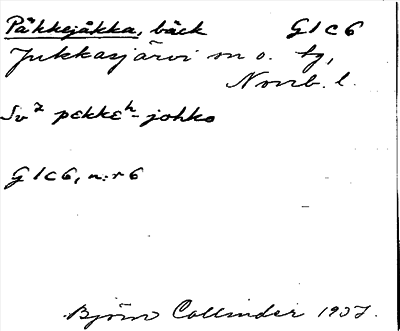 Päkkejåkka, bäck G1C6
Jukkasjärvi sn o. tg,
Norrb. l.
pεkkεʰ-johko
G1C6, n:r 6
Björn Collinder 1937.